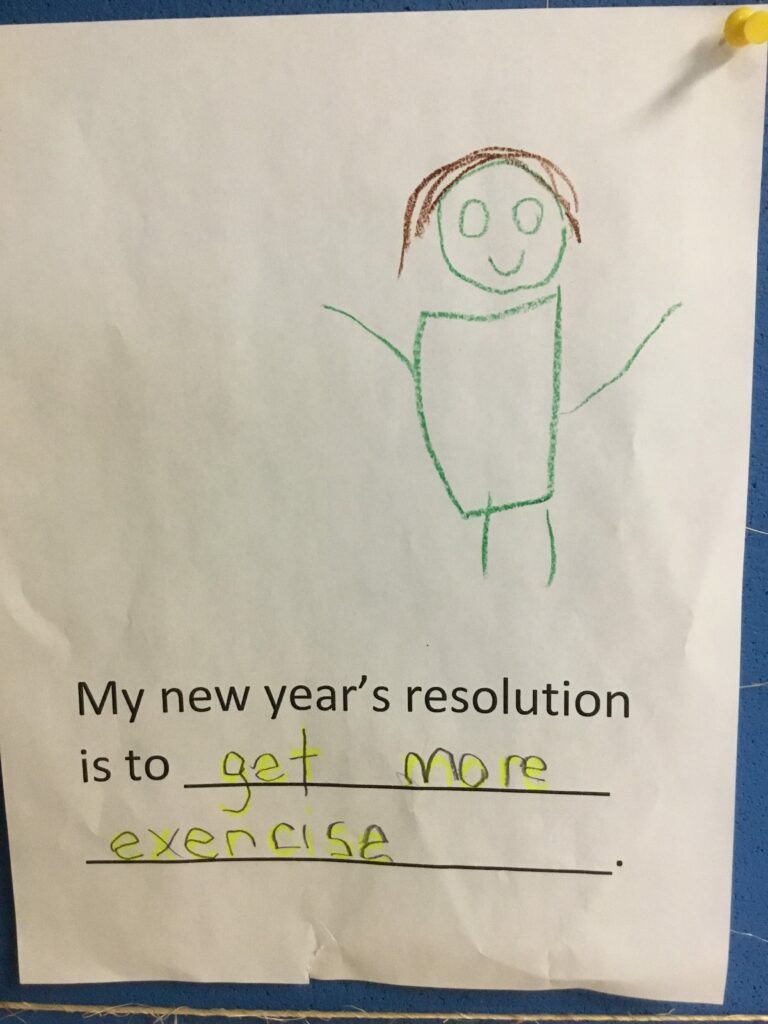 My new year's resolution
is to get more
exercise.